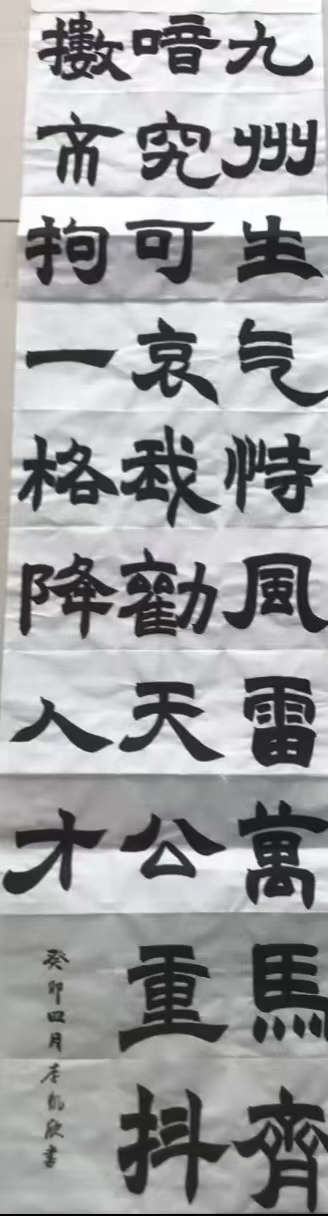 九州生气恃風雷萬馬齊
喑究可哀我勸天公重抖
擻拘一格降人才
癸卯四月李書